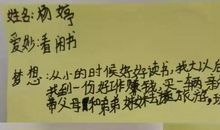 姓名:杨婷
爱妙:看闲书
梦想:从小的时候好好读书,我大以后
找到一份好工作赚钱,买一辆
带父母和弟弟妹妹去旅游,